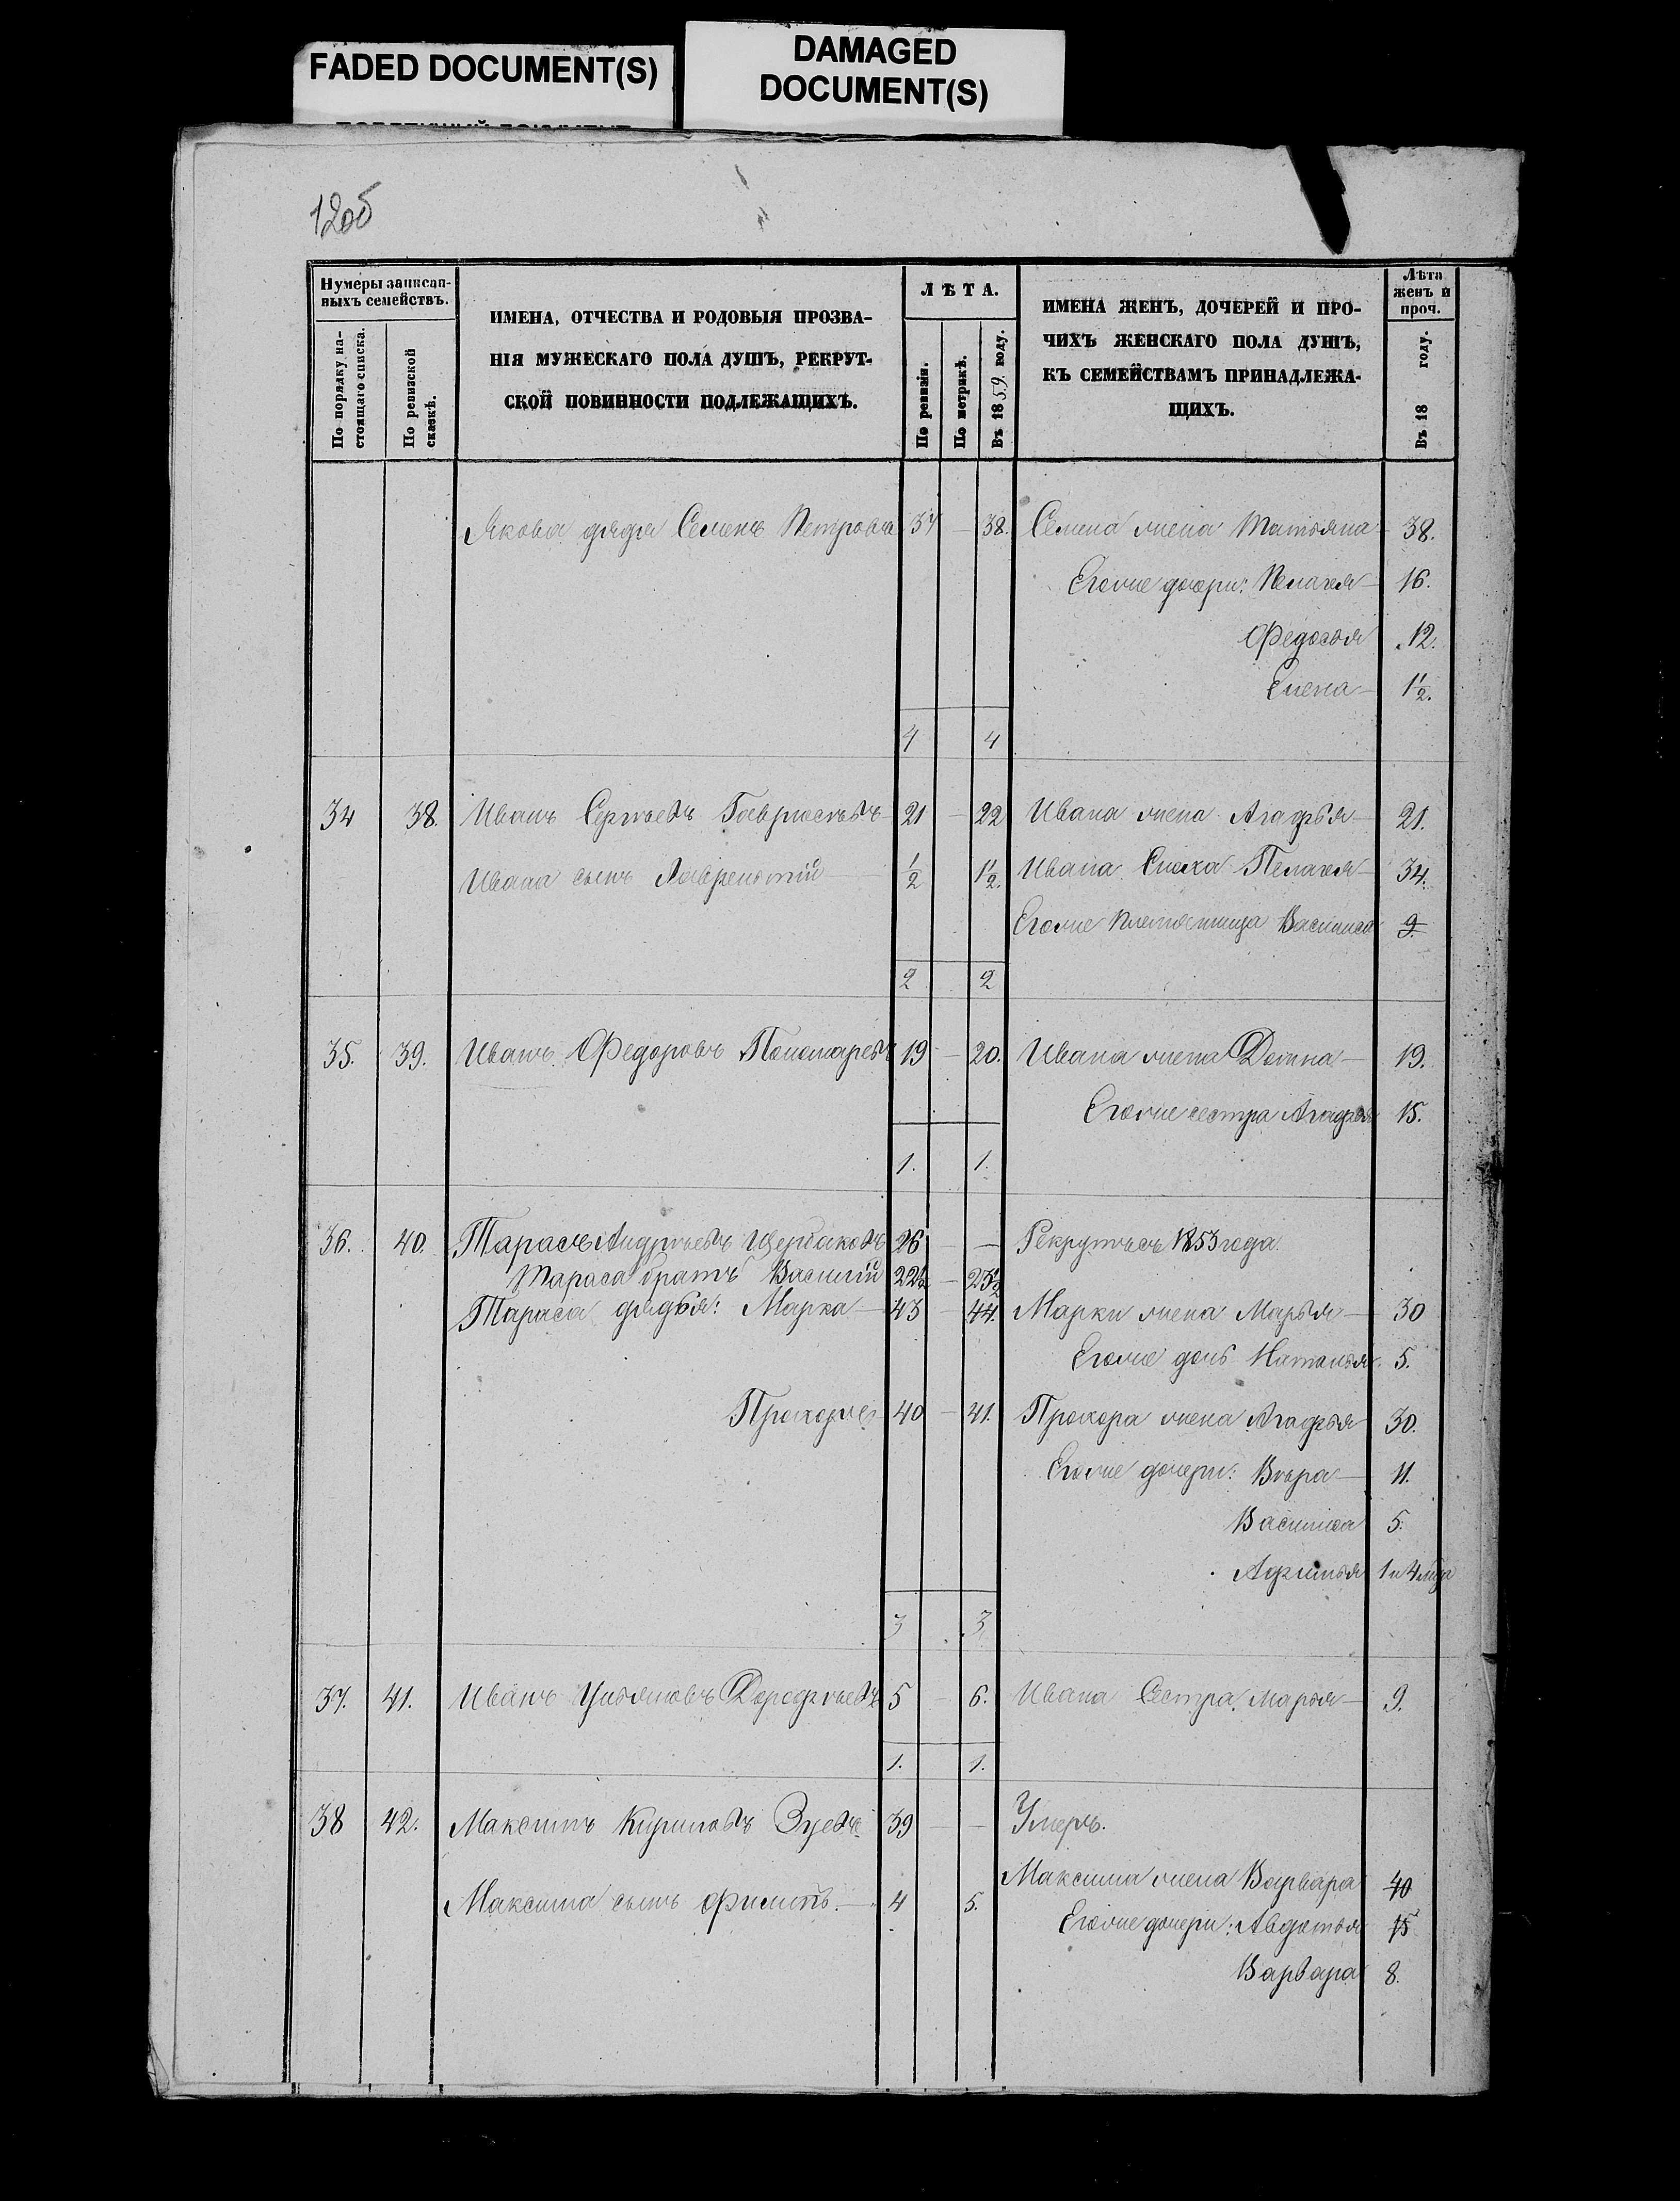 FADED DOCUMENT(S)
DAMAGED
DOCUMENT(S)
12об
Нумеры записан-
ныхъ семействъ.
По порядку на-
стоящаго списка.
По ревизской
сказкѣ.
ИМЕНА, ОТЧЕСТВА И РОДОВЫЯ ПРОЗВА-
НІЯ МУЖЕСКАГО ПОЛА ДУШЪ, РЕКРУТ-
СКОЙ ПОВИННОСТИ ПОДЛЕЖАЩИХЪ.
ЛѢТА.
По ревизіи.
По метрикѣ.
Въ 1859 году.
ИМЕНА ЖЕНЪ, ДОЧЕРЕЙ И ПРО-
ЧИХЪ ЖЕНСКАГО ПОЛА ДУШЪ,
КЪ СЕМЕЙСТВАМЪ ПРИНАДЛЕЖА-
ЩИХЪ.
Лѣта
женъ и
проч.
Въ 18 году.
Якова дядя Семенъ Петровъ 37 — 38. Семена жена Татьяна — 38.
Егоже дочери: Пелагея — 16.
Федосья 12.
Елена — 1 1/2.
4 4
34 38. Иванъ Сергѣевъ Гаврюсевъ 21 — 22 Ивана жена Агафья — 21.
Ивана сынъ Лаврентій — 1/2 1 1/2. Ивана Сноха Пелагея — 34.
Егоже Племянница Василиса 9.
2 2
35. 39. Иванъ Федоровъ Пономаревъ 19 — 20. Ивана жена Домна — 19.
Егоже сестра Агафья 15.
1. 1.
36. 40. Тарасъ Андреевъ Щербаковъ 26 — — Рекрутъ съ 1853 года.
Тараса братъ Василій 22 1/2 — 23 1/2
Тараса дядья: Марка — 43 — 44. Марки жена Марья — 30
Егоже дочь Наталья 5.
Прохоръ 40 — 41. Прохора жена Агафья 30.
Егоже дочери: Вѣра — 11.
Василиса 5.
Афимья 1 и 4 мѣся
3 3
37. 41. Иванъ Ульяновъ Дорофѣевъ 5 6. Ивана Сестра Марья — 9.
1. 1.
38 42. Максимъ Кириловъ Зуевъ 39 — — Умеръ.
Максима жена Варвара 40
Максима сынъ Филипъ. — 4 5.
Егоже дочери: Авдотья 15
Варвара 8.